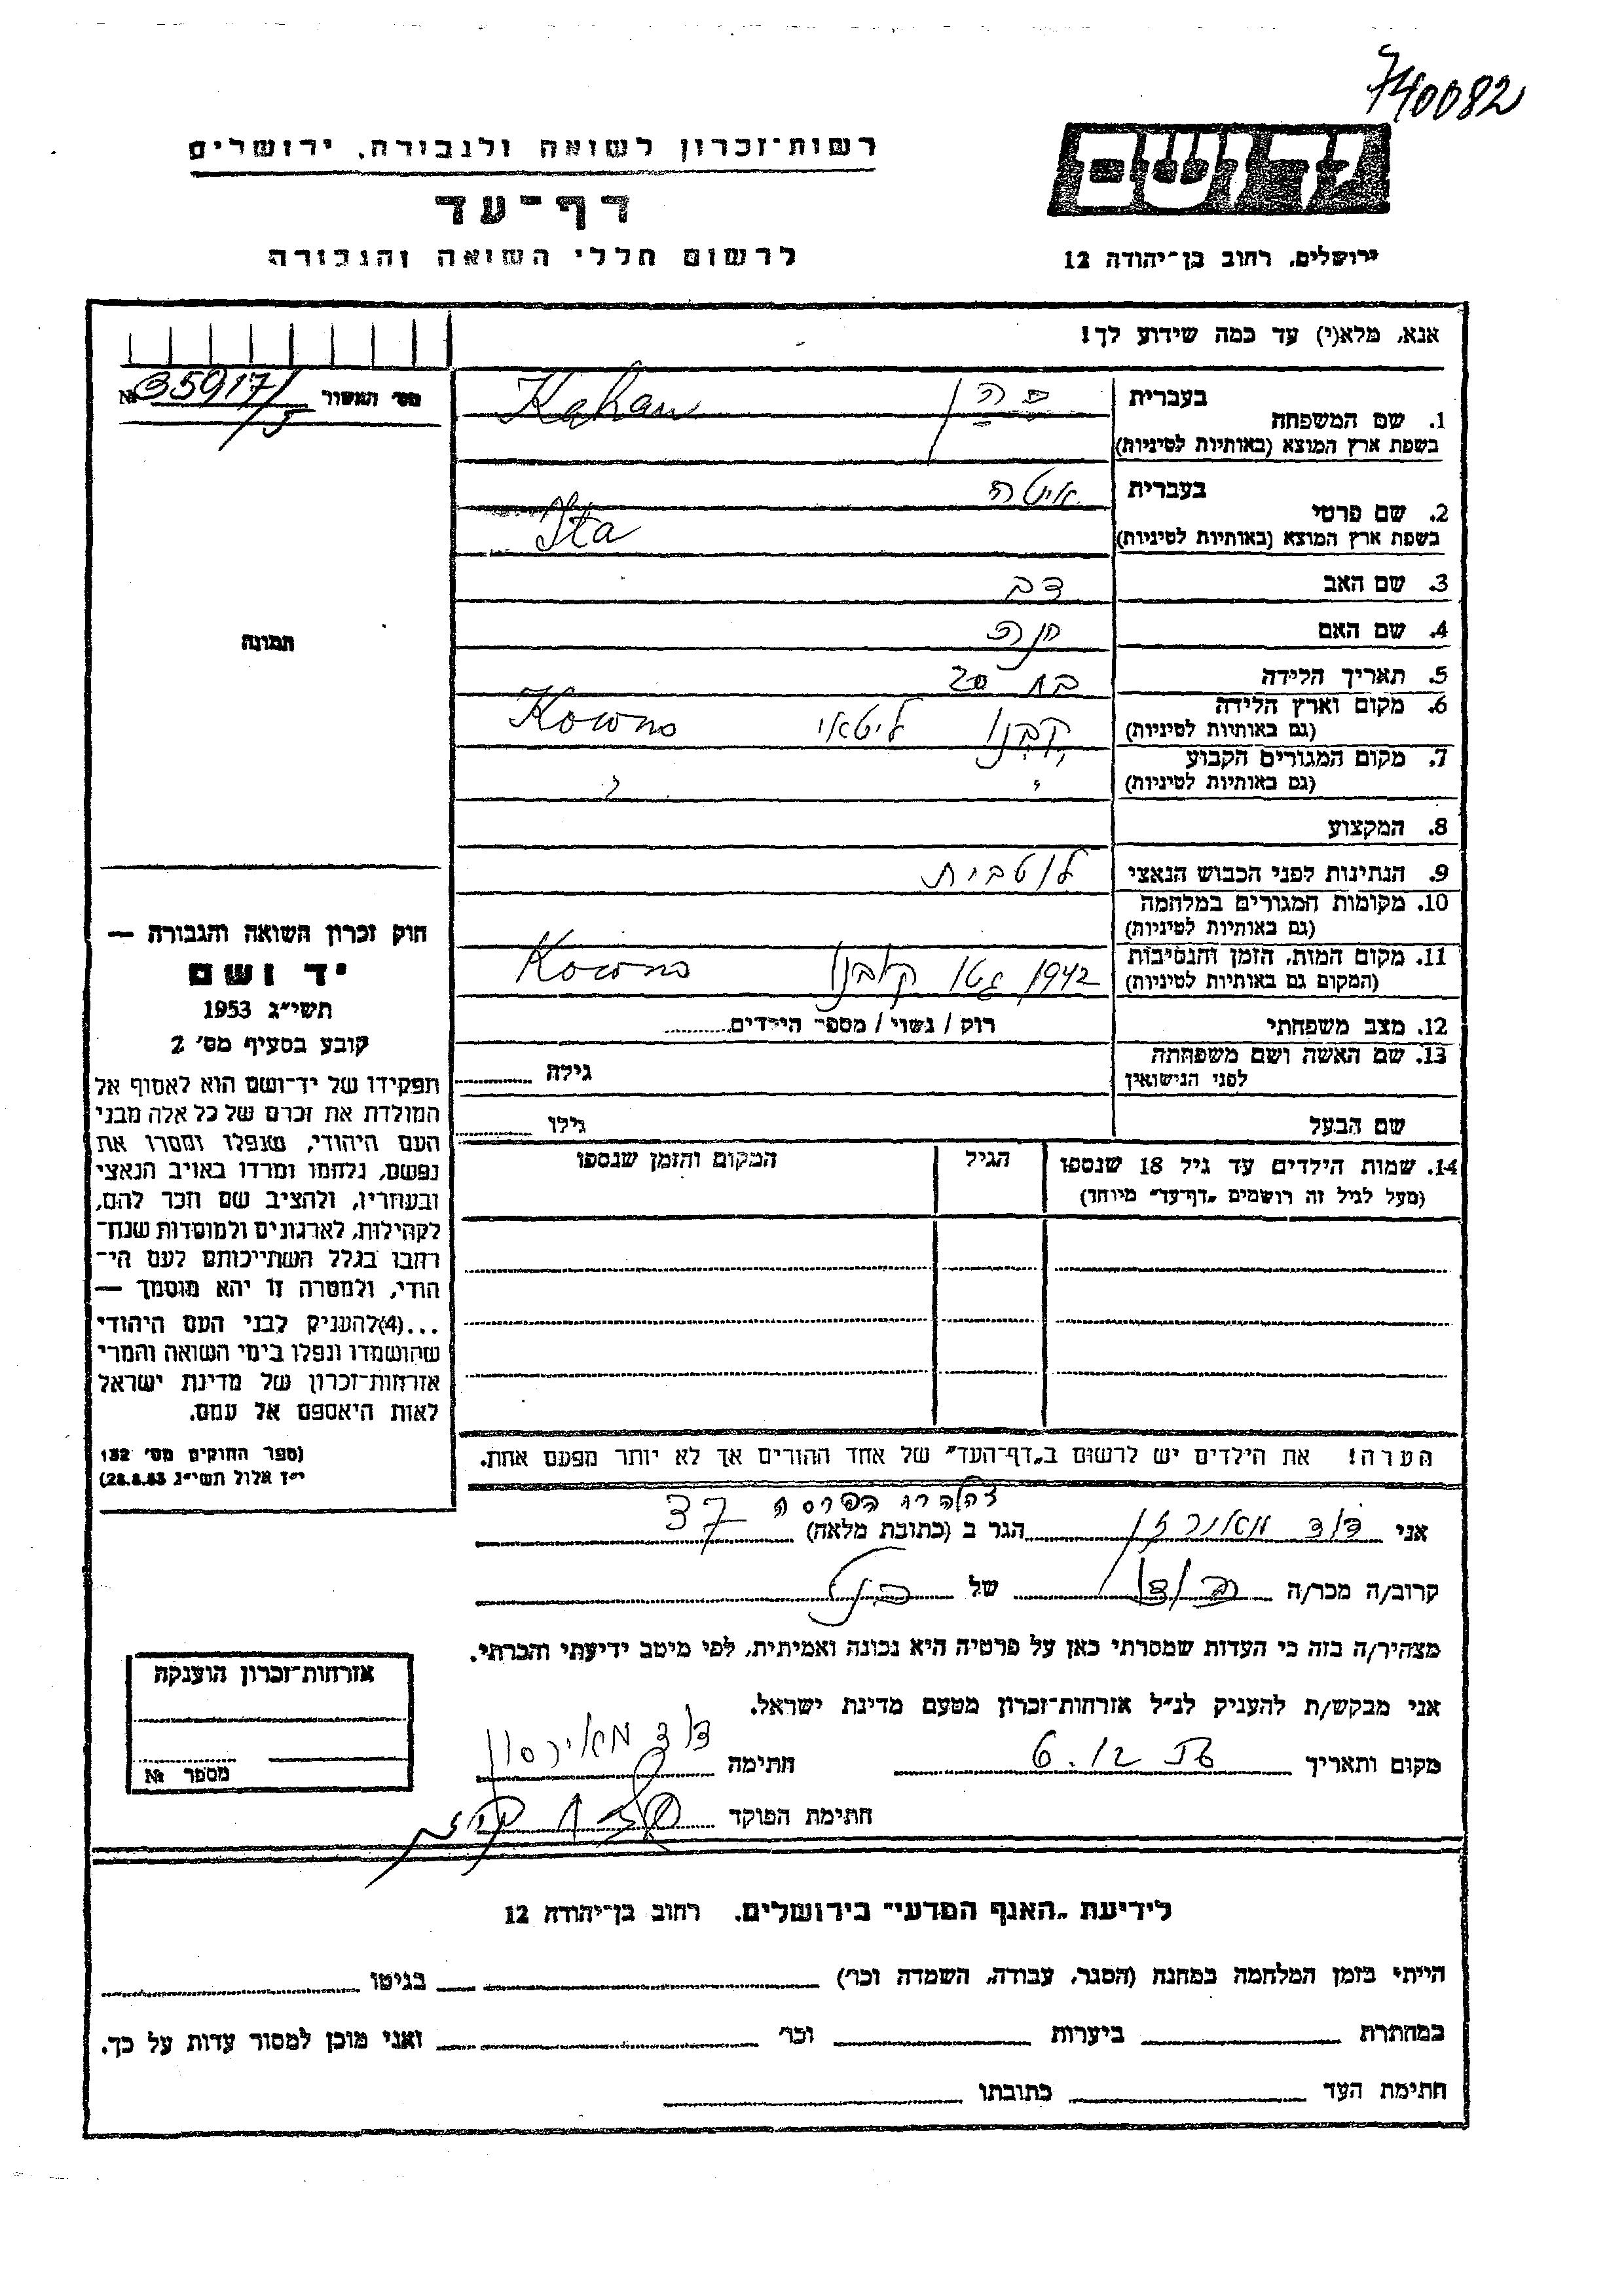 740082
יד ושם
ירושלים, רחוב בן־יהודה 12
רשות־זכרון לשואה ולגבורה, ירושלים
דף־עד
לרשום חללי השואה והגבורה
אנא, מלא(י) עד כמה שידוע לך!
מס' האשור № 35917/5
1. שם המשפחה בעברית כהן
בשפת ארץ המוצא (באותיות לטיניות) Kahan
2. שם פרטי בעברית איטה
בשפת ארץ המוצא (באותיות לטיניות) Ita
3. שם האב דב
4. שם האם חנה
5. תאריך הלידה בת 20
6. מקום וארץ הלידה קובנו ליטאי Kowno
(גם באותיות לטיניות)
7. מקום המגורים הקבוע
(גם באותיות לטיניות)
8. המקצוע
9. הנתינות לפני הכבוש הנאצי
10. מקומות המגורים במלחמה
(גם באותיות לטיניות)
11. מקום המות, הזמן והנסיבות 1942 גטו קובנו Kowno
(המקום גם באותיות לטיניות)
12. מצב משפחתי רוק / נשוי / מספר הילדים
13. שם האשה ושם משפחתה גילה
לפני הנישואין
שם הבעל גילו
14. שמות הילדים עד גיל 18 שנספו הגיל המקום והזמן שנספו
(מעל לגיל זה רושמים „דף־עד" מיוחד)
הערה! את הילדים יש לרשום ב„דף־העד" של אחד ההורים אך לא יותר מפעם אחת.
תמונה
חוק זכרון השואה והגבורה —
יד ושם
תשי״ג 1953
קובע בסעיף מס' 2
תפקידו של יד־ושם הוא לאסוף אל
המולדת את זכרם של כל אלה מבני
העם היהודי, שנפלו ומסרו את
נפשם, נלחמו ומרדו באויב הנאצי
ובעוזריו, ולהציב שם וזכר להם,
לקהילות, לארגונים ולמוסדות שנח־
רבו בגלל השתייכותם לעם הי־
הודי, ולמטרה זו יהא מוסמך —
...(4) להעניק לבני העם היהודי
שהושמדו ונפלו בימי השואה והמרי
אזרחות־זכרון של מדינת ישראל
לאות היאספם אל עמם.
(ספר החוקים מס' 132
י״ז אלול תשי״ג 28.8.53)
אני דוד הגר ב (כתובת מלאה) 37
קרוב/ה מכר/ה של
מצהיר/ה בזה כי העדות שמסרתי כאן על פרטיה היא נכונה ואמיתית, לפי מיטב ידיעתי והכרתי.
אני מבקש/ת להעניק לנ״ל אזרחות־זכרון מטעם מדינת ישראל.
מקום ותאריך 6.12 חתימה דוד מאירסון
חתימת הפוקד
אזרחות־זכרון הוענקה
מספר №
לידיעת „האגף המדעי" בירושלים, רחוב בן־יהודה 12
הייתי בזמן המלחמה במחנה (הסגר, עבודה, השמדה וכו') בגיטו
במחתרת ביערות וכו' ואני מוכן למסור עדות על כך.
חתימת העד כתובתו